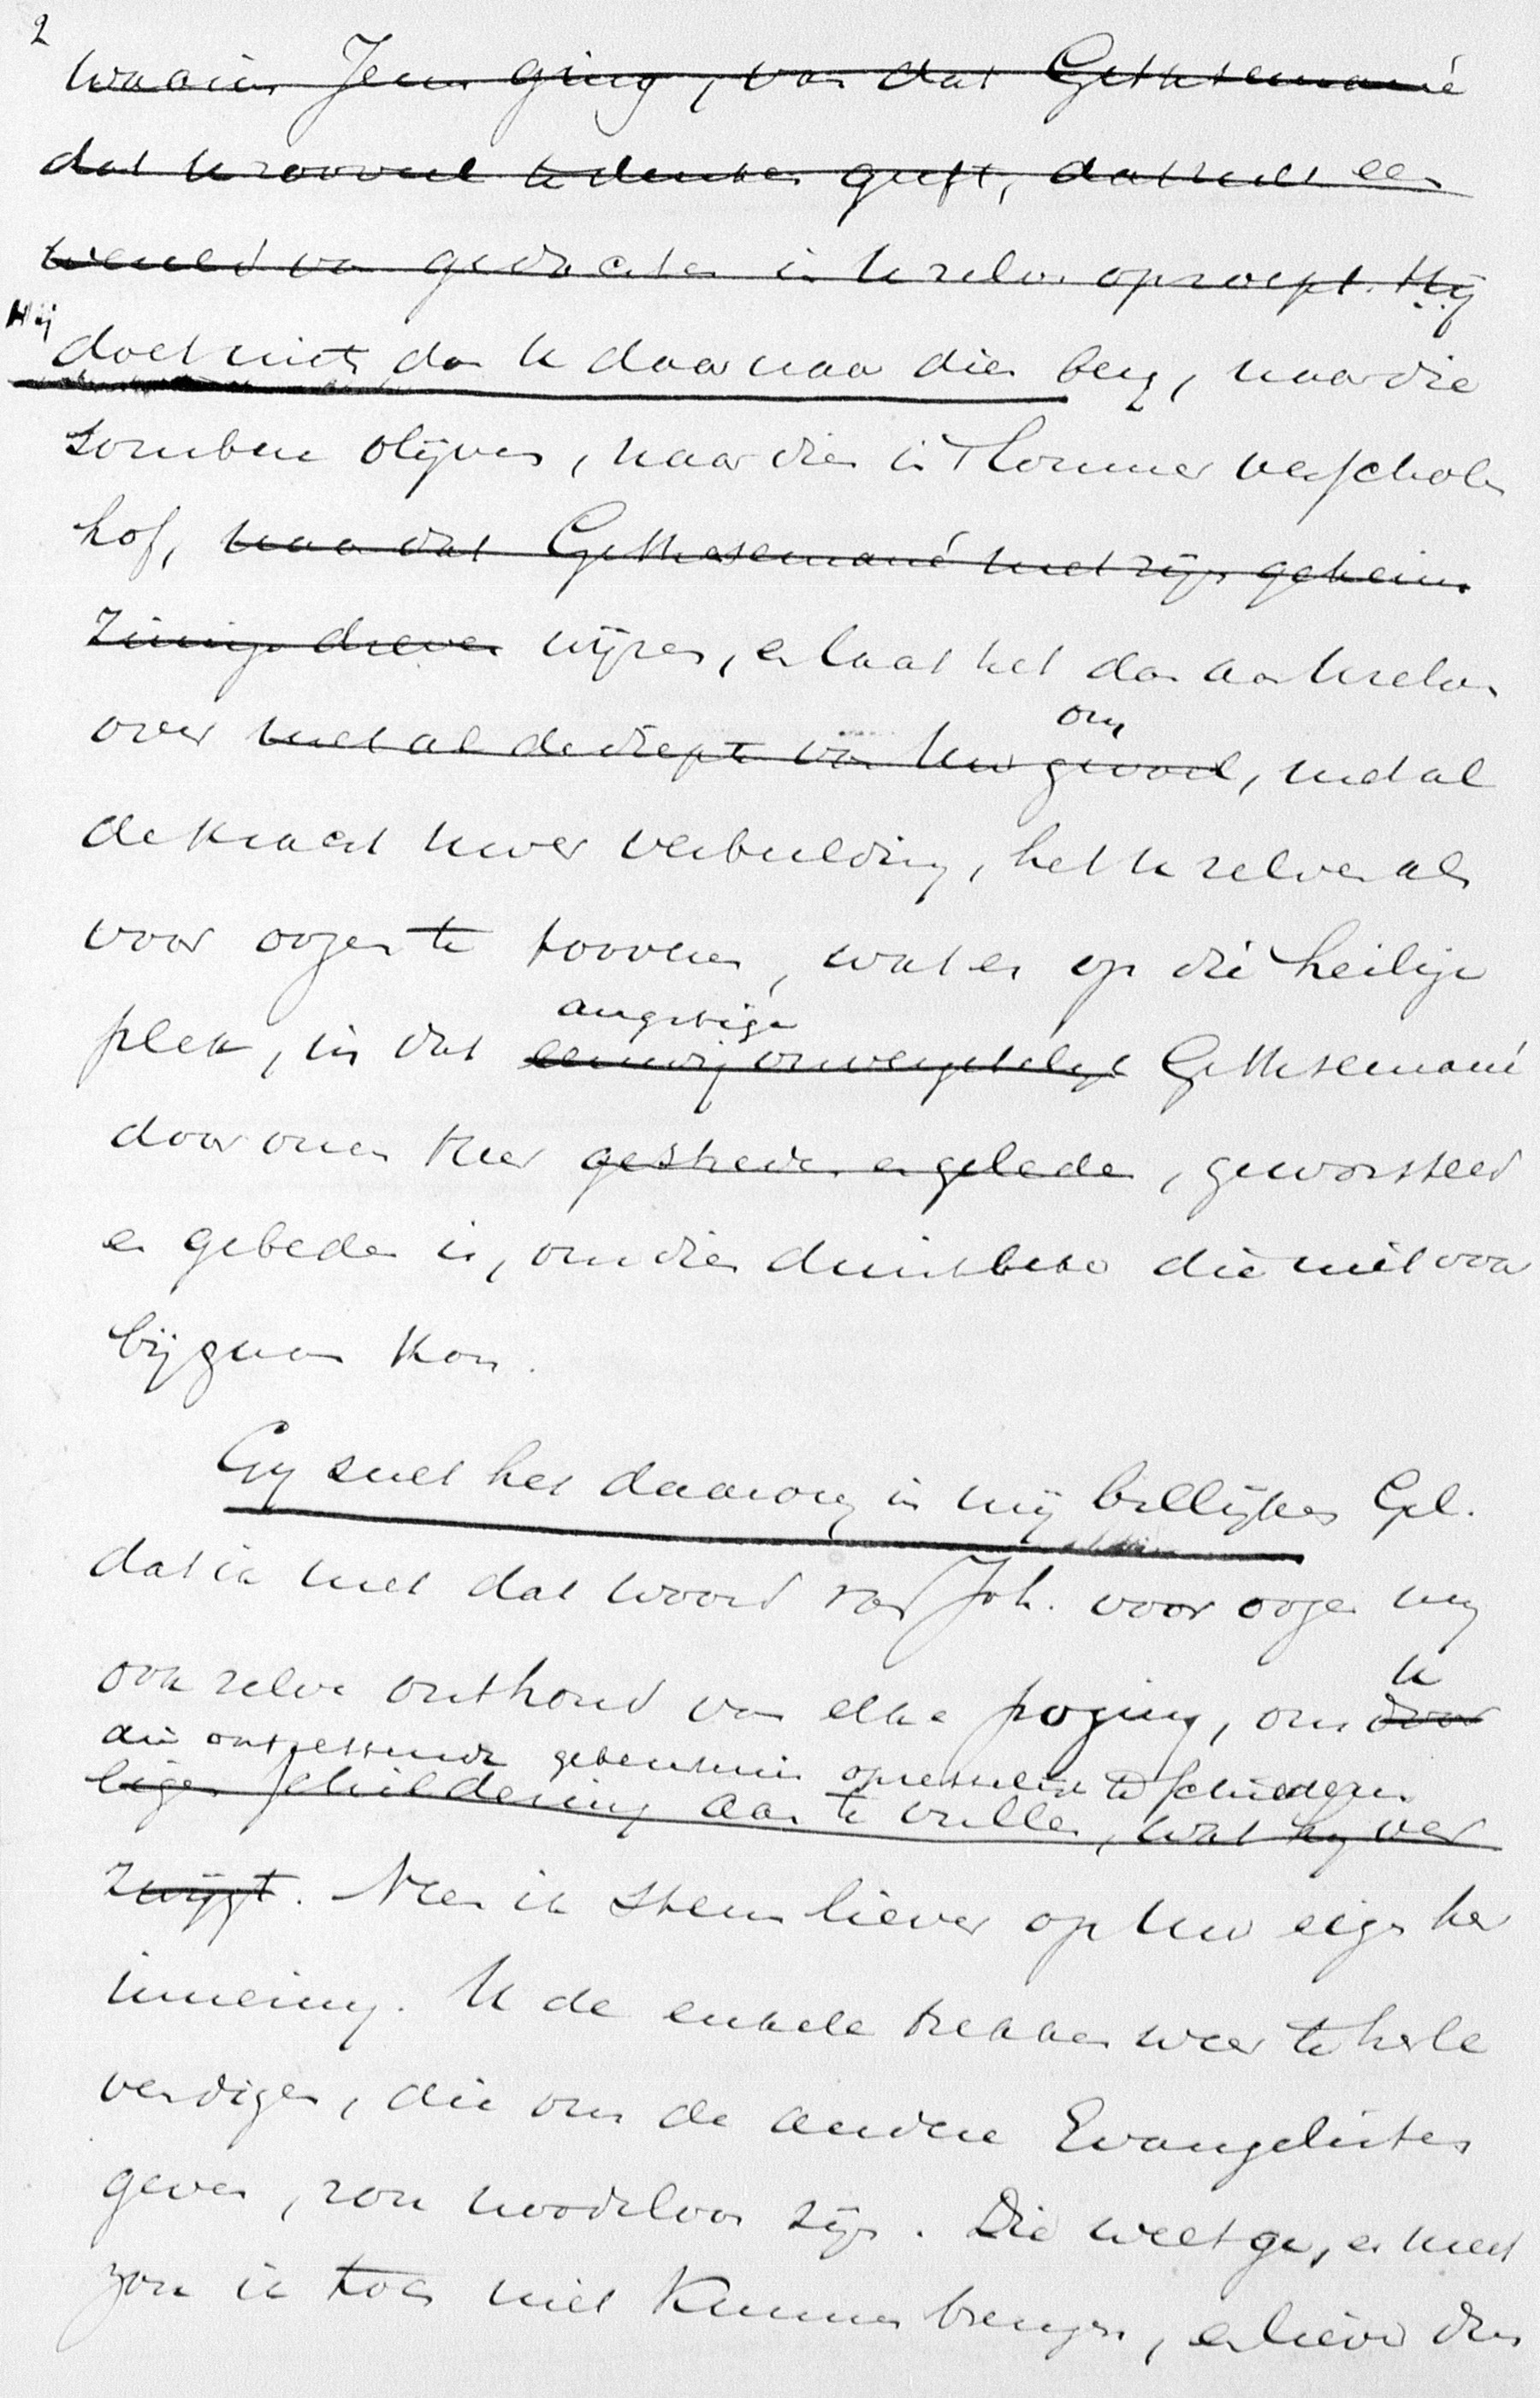 2
waarin Jezus ging, van dat Gethsemané
dat u zooveel te denken geeft, dat u een
wereld van gedachten in u zelven oproept. Hij
Hij
doet niets dan u daar naar dien berg, naar die
sombere olijven, naar dien in 't lommer verscholen
hof, naar dat Gethsemané met zijn geheim
zinnige dreven wijzen, en laat het dan aan u zelven
om
over met al de diepte van uw gevoel, met al
de kracht uwer verbeelding, het u zelven als
voor oogen te toovenen, wat er op die heilige
angstige
plek, in dat eeuwig onvergetelijk Gethsemané
door onzen Heer gestreden en geleden, geworsteld
en gebeden is, om dien drinkbeker die niet voor
bijgaan kon.
Gij zult het daarom in mij billijken Gel.
dat ik met dat woord van Joh. voor oogen mij
u
ook zelve onthoud van elke poging, om door
die ontzettende gebeurtenis opzettelijk te schilderen
eigen schildering aan te vullen, wat hij ver
zwijgt. Neen ik steun liever op uw eigen her
innering. U de enkele trekken weer te herle
vendigen, die ons de andere Evangelisten
geven, zou noodeloos zijn. Die weet ge, en meer
zou ik toch niet kunnen brengen, en liever dan